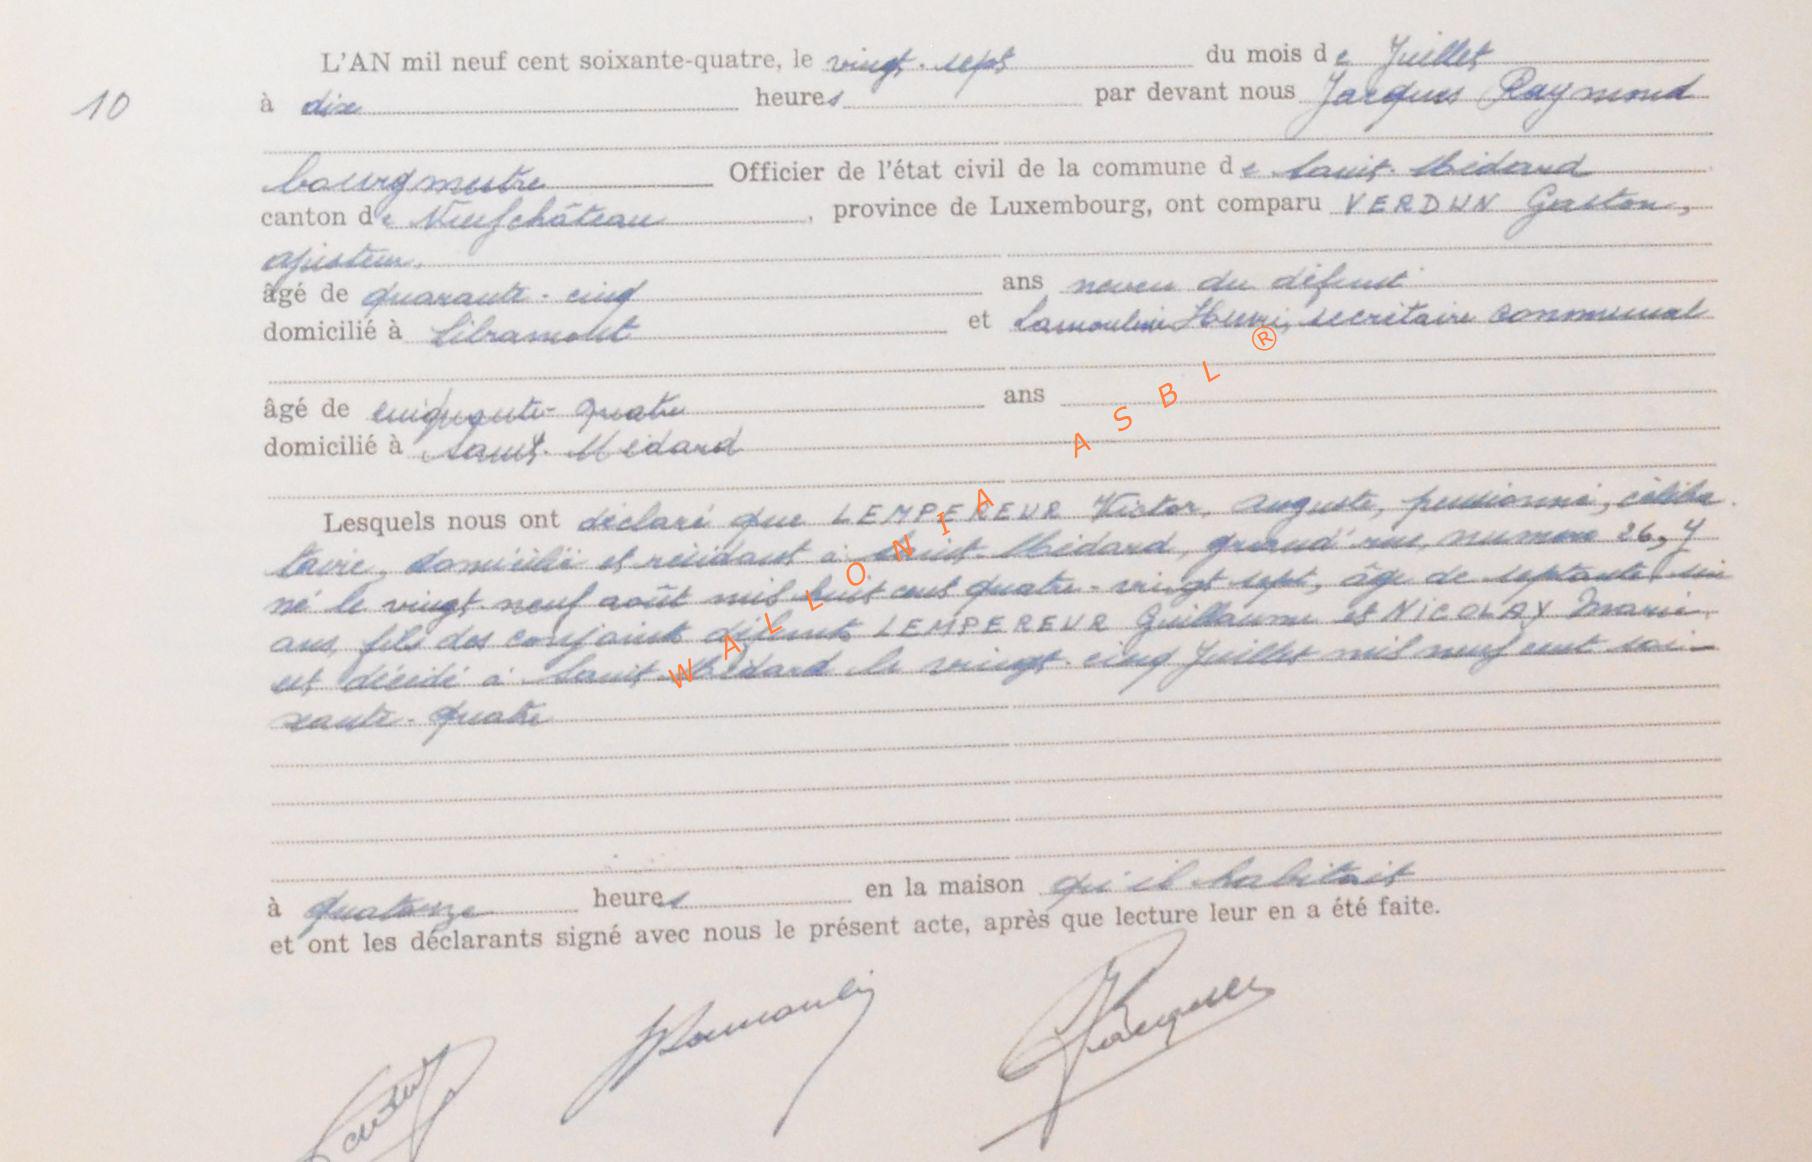 L'AN mil neuf cent soixante-quatre, le vingt-sept du mois de Juillet
10 à dix heures par devant nous Jacques Raymond
bourgmestre Officier de l'état civil de la commune de Saint-Médard
canton de Neufchâteau, province de Luxembourg, ont comparu VERDUN Gaston,
ajusteur,
âgé de quarante-cinq ans neveu du défunt
domicilié à Libramont et Lamouline Henri, secrétaire communal
âgé de cinquante-quatre ans
domicilié à Saint-Médard
Lesquels nous ont déclaré que LEMPEREUR Victor, Auguste, pensionné, céliba-
taire, domicilié et résidant à Saint-Médard, grand'rue, numéro 26, y
né le vingt-neuf août mil huit cent quatre-vingt sept, âgé de septante six
ans, fils des conjoints défunts LEMPEREUR Guillaume et NICOLAY Marie,
est décédé à Saint-Médard le vingt-cinq Juillet mil neuf cent soi-
xante-quatre
à quatorze heures en la maison qu'il habitait
et ont les déclarants signé avec nous le présent acte, après que lecture leur en a été faite.
WALLONIA ASBL ®